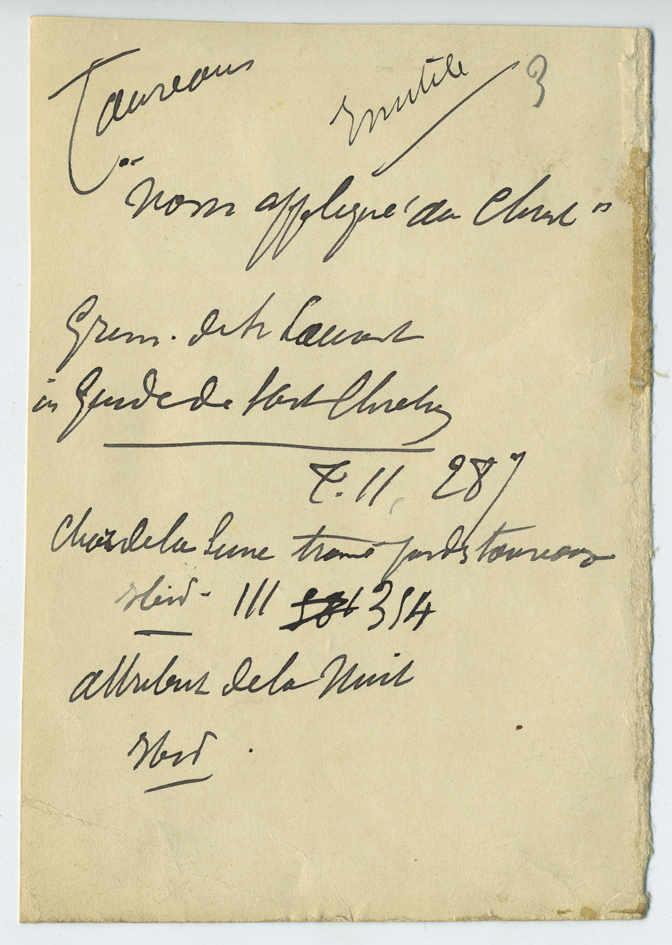 Taureaux
Inutile
3
"Nom appliqué au Christ"
Grim. de St Laurent
in Guide de l'Art Chrétien
T. II, 287
Char de la Lune traîné par des taureaux
Ibid. III 354
attribut de la Nuit
Ibid.